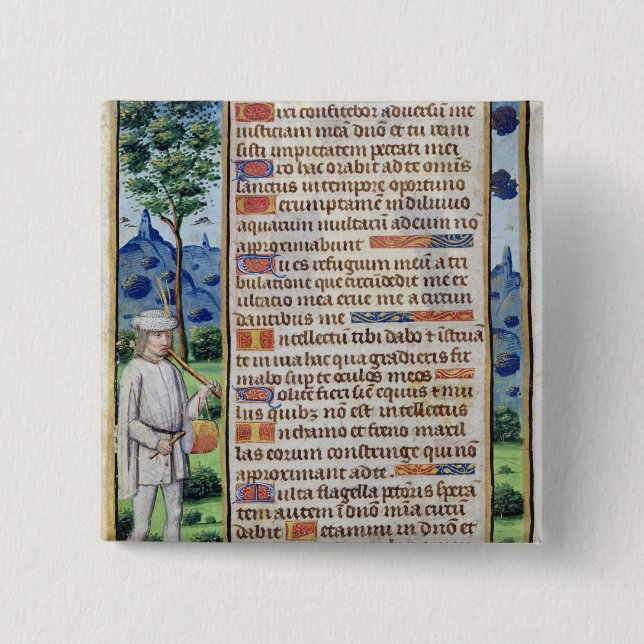 Dixi confitebor adversum me
iusticiam meā dño et tu remi
sisti impietatem peccati mei
Pro hac orabit ad te omīs
sanctus in tempore oportuno
Verumptamē in diluvio
aquarum multarū ad eum nō
approximabunt
Tu es refugium meū a tri
bulatione que circūdedit me ex
ultatio mea erue me a circun
dantibus me
Intellectū tibi dabo ⁊ īstruā
te in via hac qua gradieris fir
mabo sup te oculos meos
Nolite fieri sicut equis ⁊ mu
lus quibꝫ nō est intellectus
In chamo et freno maxil
las eorum constringe qui nō
approximant ad te
Multa flagella pctōris spera
tem autem ī dño mīa circū
dabit Letamini in dño et